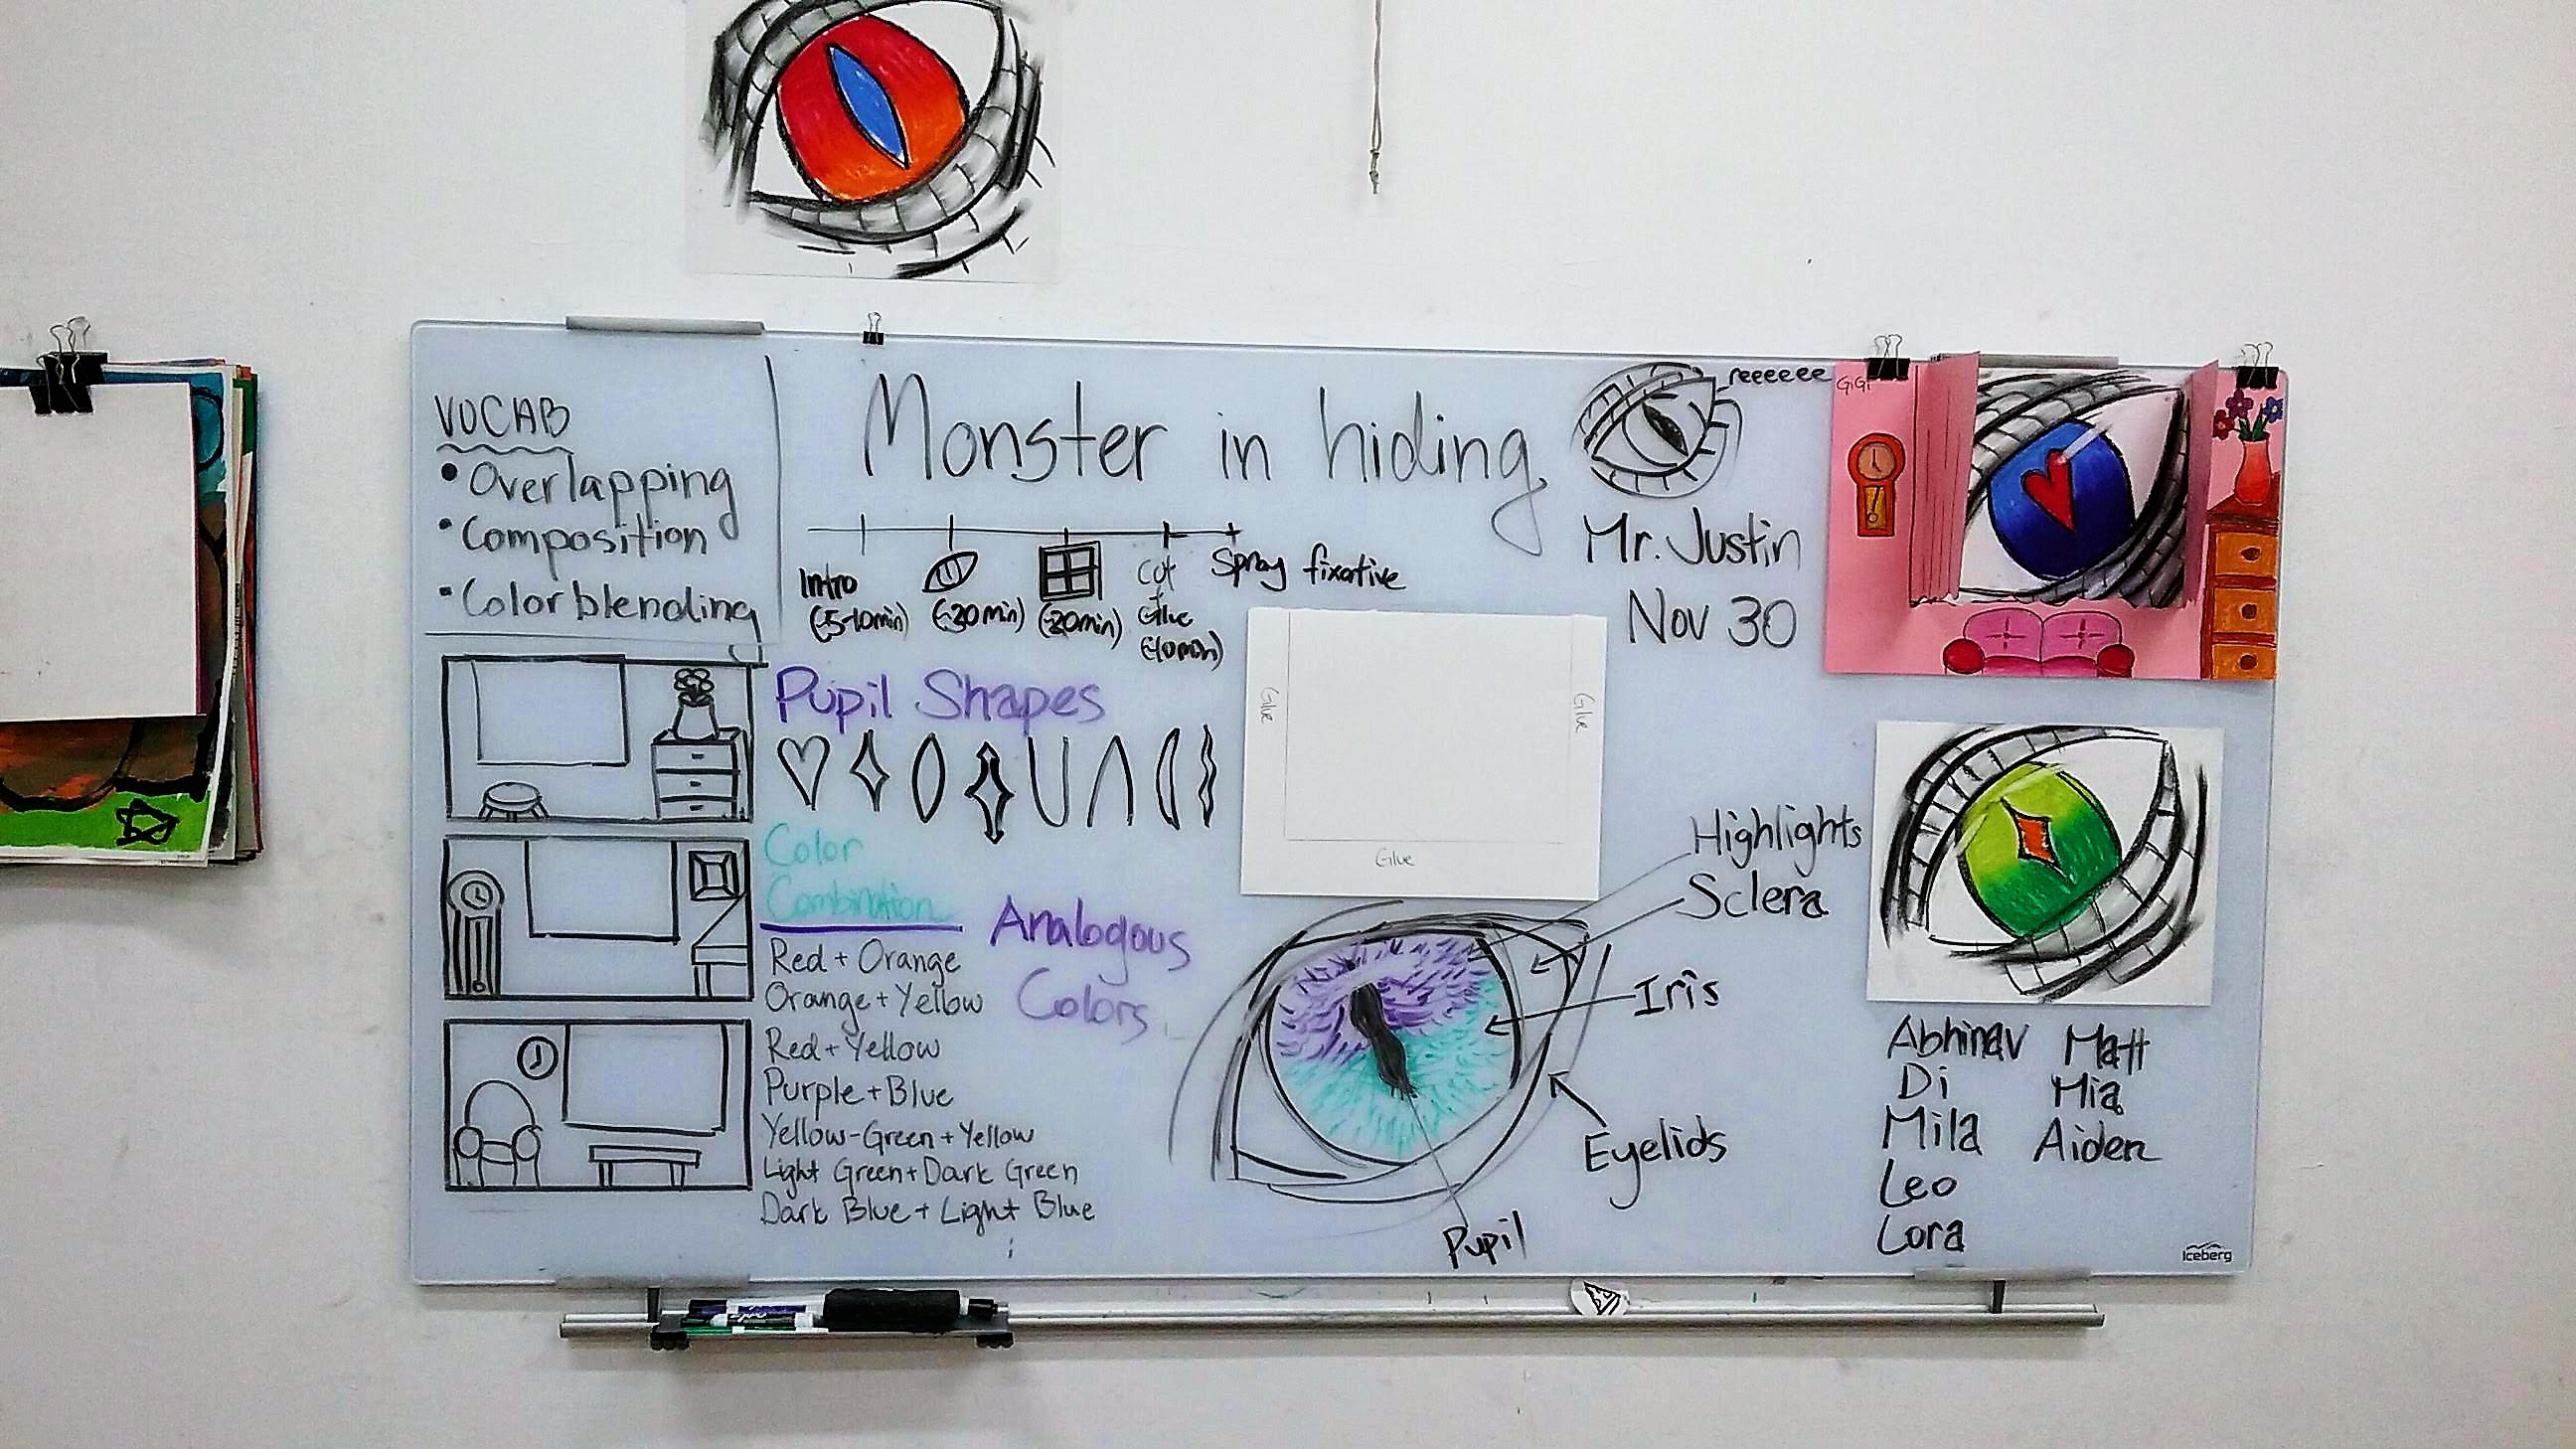 VOCAB
• Overlapping
• Composition
• Color blending
Monster in hiding
reeeeee
GiGi
Mr. Justin
Nov 30
Intro
(~5-10min)
(~30min)
(~20min)
Cut
Glue
(~10min)
Spray fixative
Pupil Shapes
Glue
Glue
Glue
Color
Combination
Analogous
Colors
Red + Orange
Orange + Yellow
Red + Yellow
Purple + Blue
Yellow-Green + Yellow
Light Green + Dark Green
Dark Blue + Light Blue
Highlights
Sclera
Iris
Eyelids
Pupil
Abhinav
Di
Mila
Leo
Lora
Matt
Mia
Aiden
Iceberg